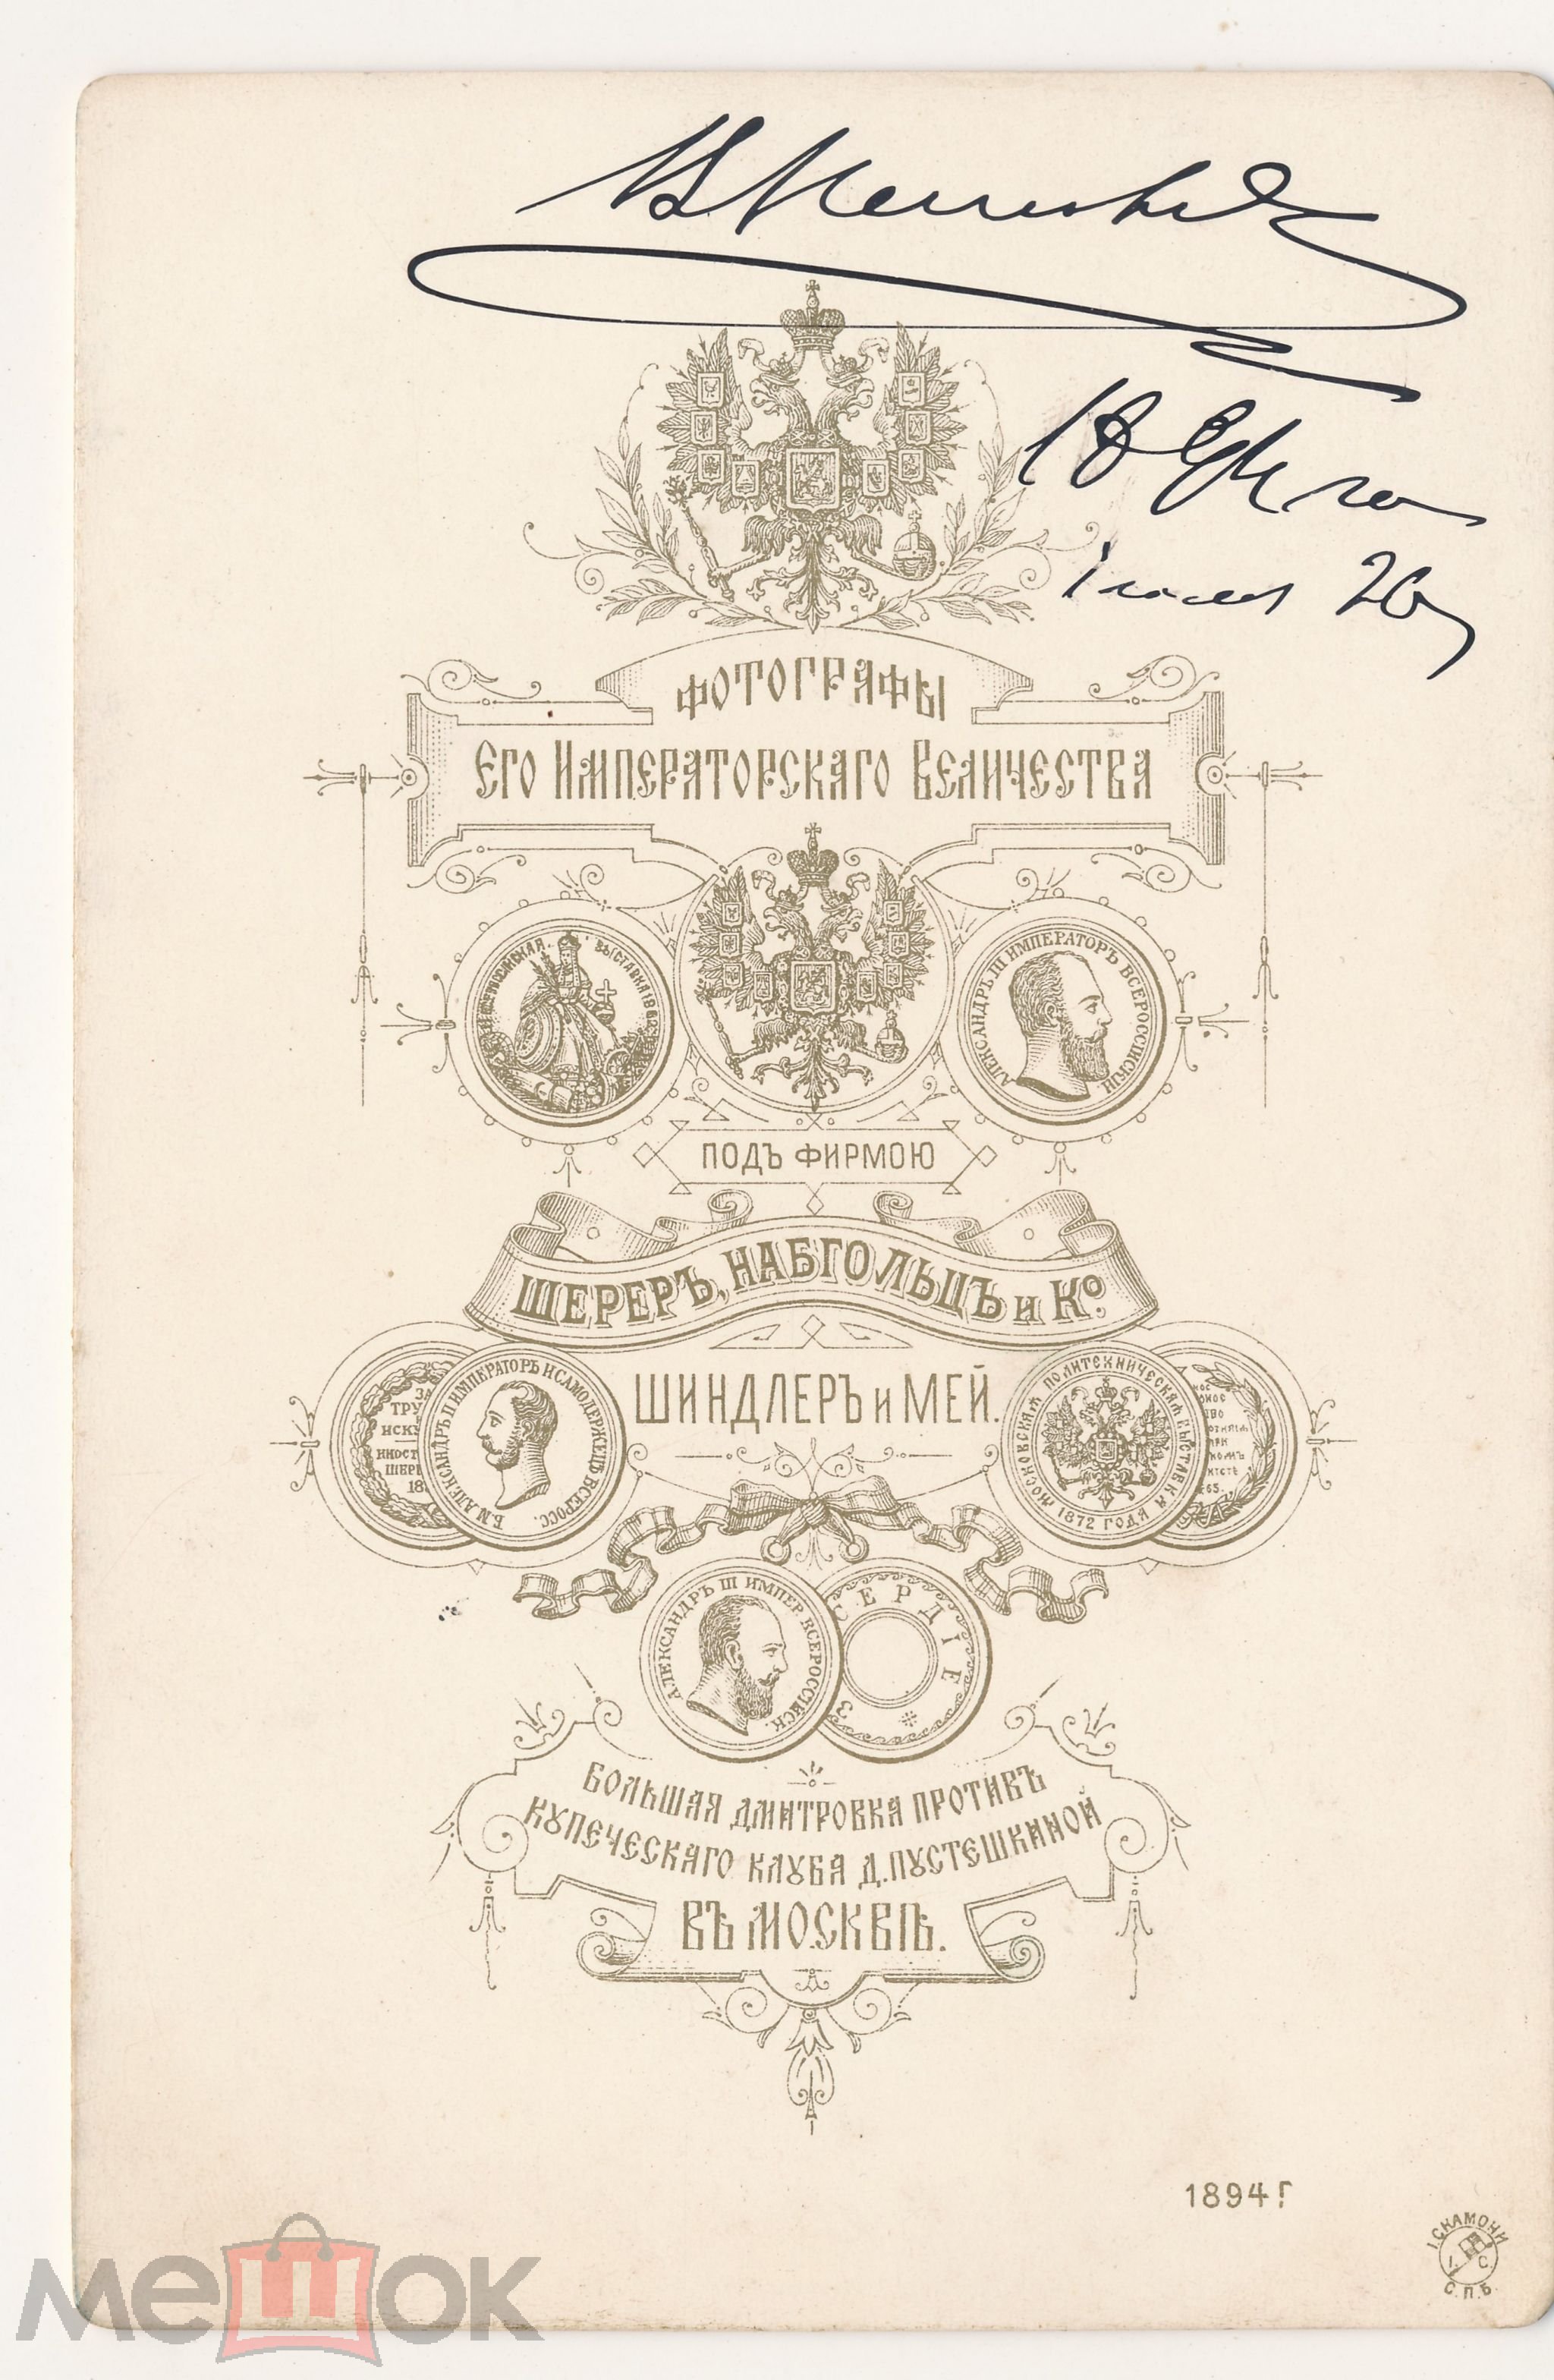 ФОТОГРАФЫ
ЕГО ИМПЕРАТОРСКАГО ВЕЛИЧЕСТВА
ВСЕРОССІЙСКАЯ ВЫСТАВКА 1882
АЛЕКСАНДРЪ III ИМПЕРАТОРЪ ВСЕРОССІЙСКІЙ
ПОДЪ ФИРМОЮ
ШЕРЕРЪ, НАБГОЛЬЦЪ и Кº.
ШИНДЛЕРЪ и МЕЙ.
ЗА
ТРУ
ИСКУ
ИНОСТ
ШЕРЕ
18
Б.М. АЛЕКСАНДРЪ II ИМПЕРАТОРЪ И САМОДЕРЖЕЦЪ ВСЕРОСС.
МОСКОВСКАЯ ПОЛИТЕХНИЧЕСКАЯ ВЫСТАВКА
1872 ГОДА
65.
АЛЕКСАНДРЪ III ИМПЕР. ВСЕРОССІЙСК.
СЕРДІЕ
З
БОЛЬШАЯ ДМИТРОВКА ПРОТИВЪ
КУПЕЧЕСКАГО КЛУБА Д. ПУСТЕШКИНОЙ
ВЪ МОСКВѢ.
1894 Г
І. СКАМОНИ
І. С.
С.П.Б.
мешок